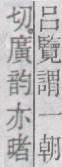 吕覽謂一朝
切。廣韵亦睹